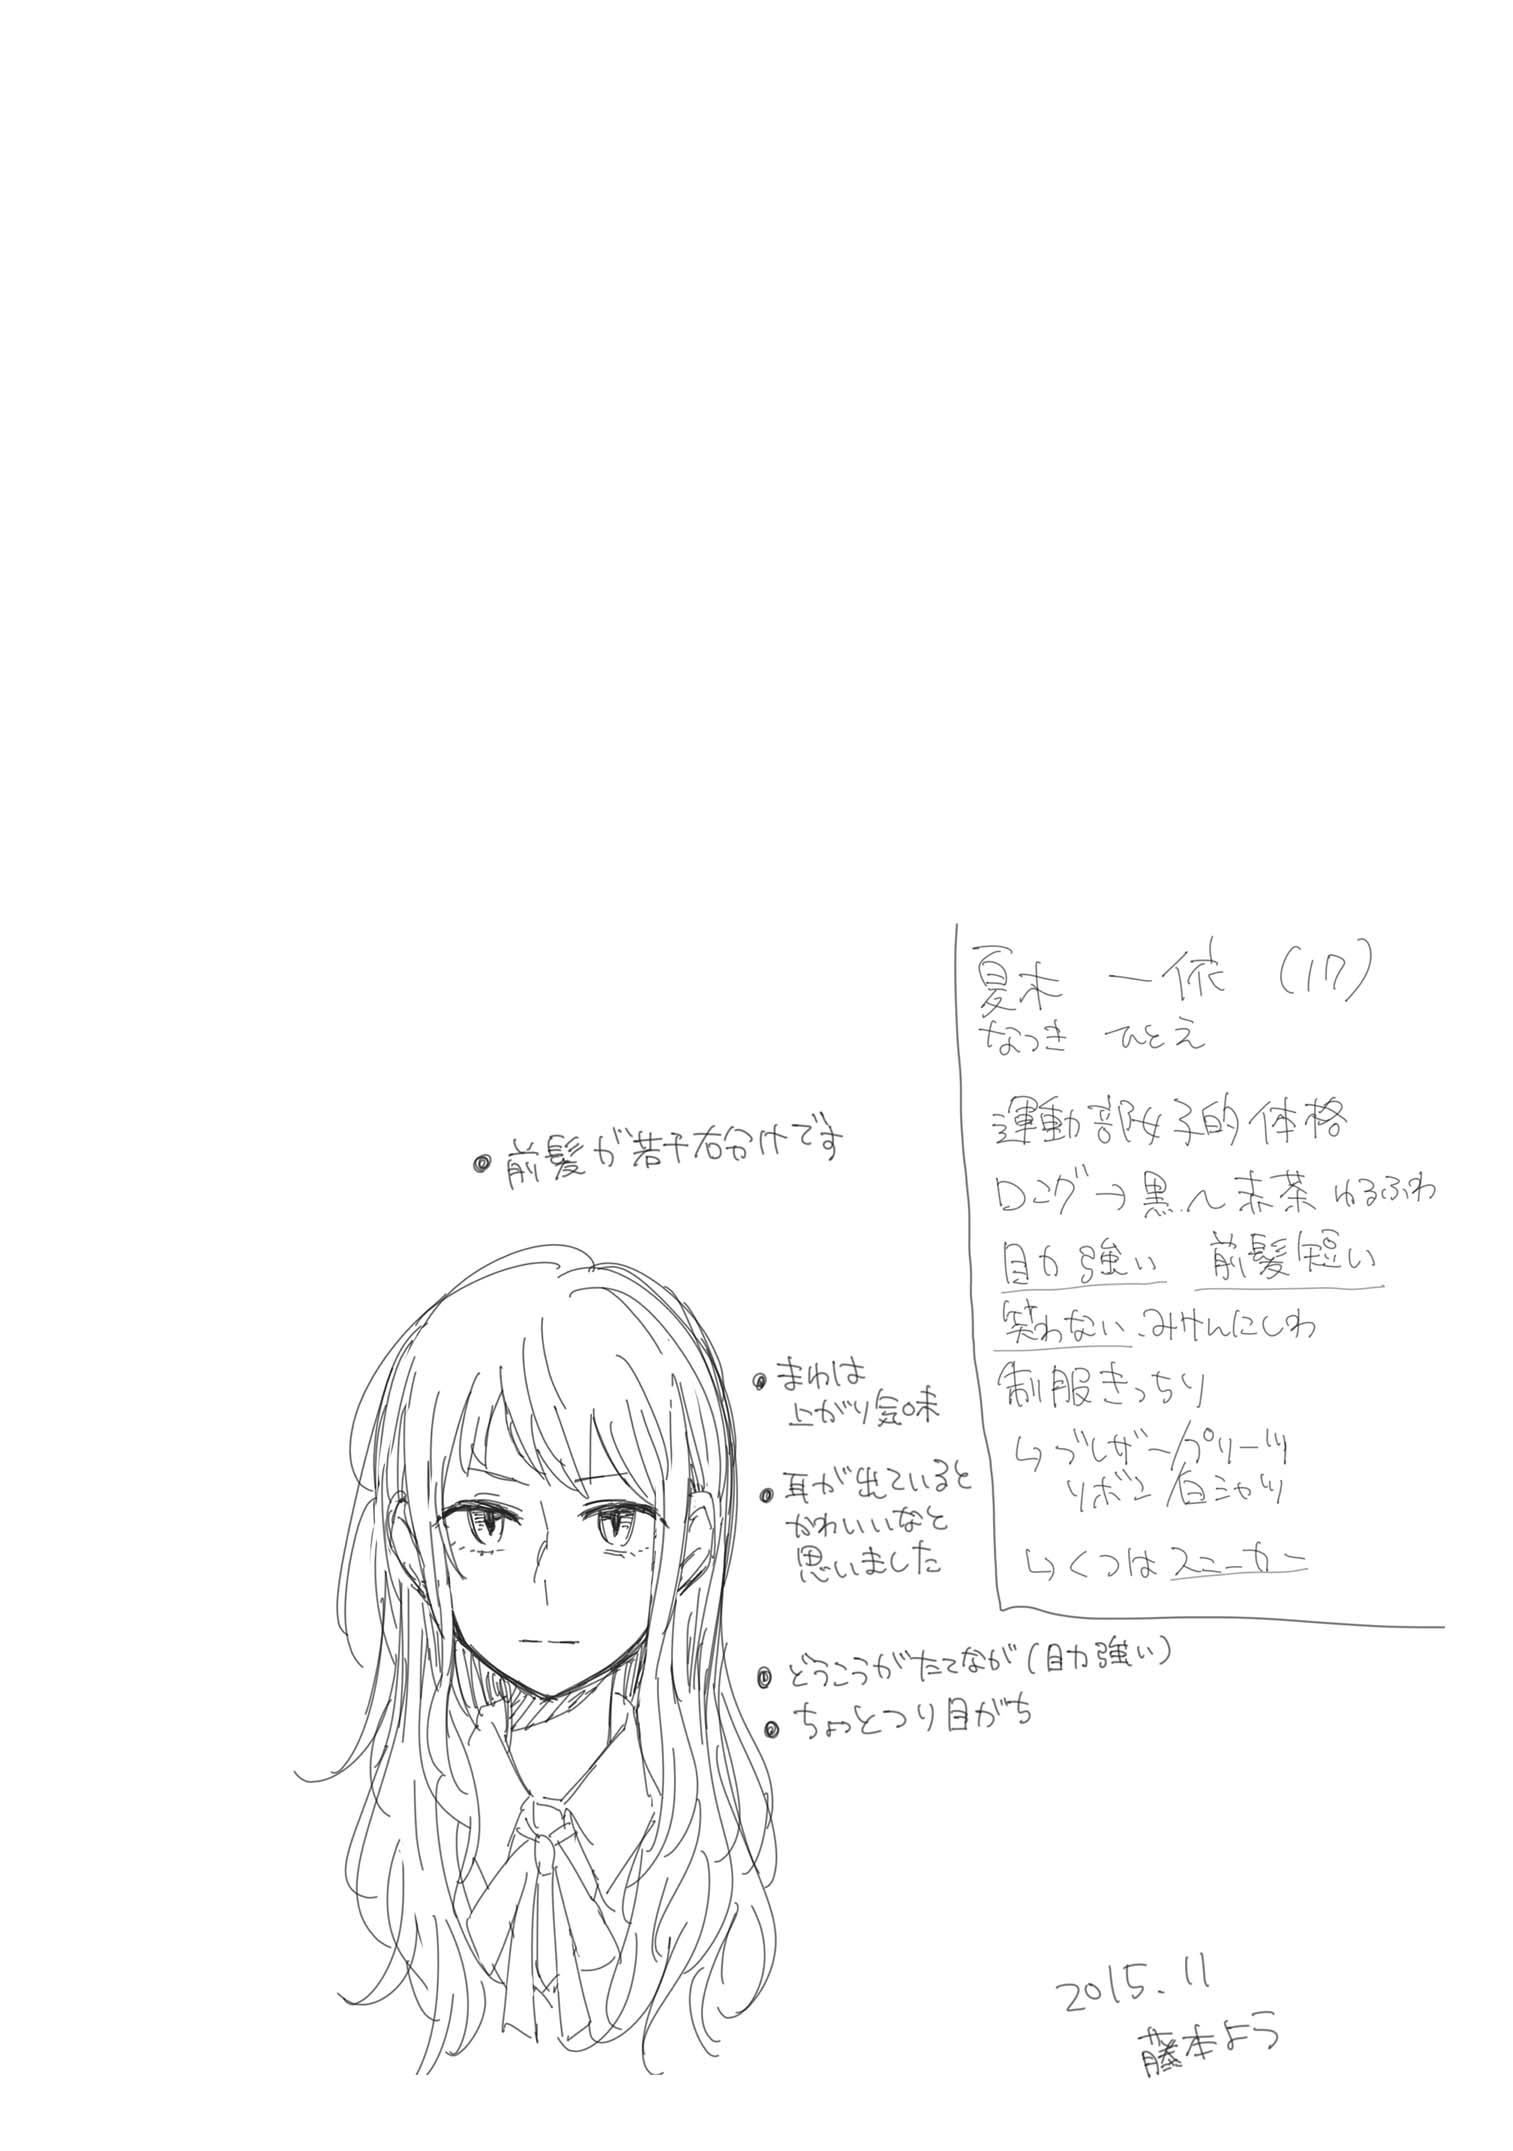 夏木 一依 (17)
なつき ひとえ
運動部女子的体格
ロング→黒〜赤茶 ゆるふわ
目力強い 前髪短い
笑わない、みけんにしわ
制服きっちり
↳ブレザー/プリーツ
リボン/白シャツ
↳くつはスニーカー
前髪が若干右分けです
まゆは
上がり気味
耳が出ていると
かわいいなと
思いました
どうこうがたてなが(目力強い)
ちょっとつり目がち
2015.11
藤本よう